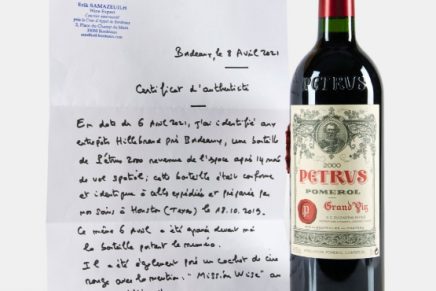 Erik SAMAZEUILH
Wine Expert
Courtier assermenté
près la Cour d'Appel de Bordeaux
2, Place du Champ de Mars
33000 Bordeaux
Bordeaux, le 8 Avril 2021
Certificat d'authenticité
En date du 6 Avril 2021, j'ai identifié aux
entrepôts Hillebrand près Bordeaux, une bouteille
de Pétrus 2000 revenue de l'espace après 14 mois
de vol spatial ; cette bouteille était conforme
et identique à celles expédiées et préparées par
nos soins à Houston (Texas) le 18.10.2019.
Ce même 6 Avril a été apposé devant moi
la bouteille portant le numéro.
Il a été également posé un cachet de cire
rouge avec la mention. "Mission Wise" au
PETRUS
2000
PETRVS
POMEROL
Grand Vin